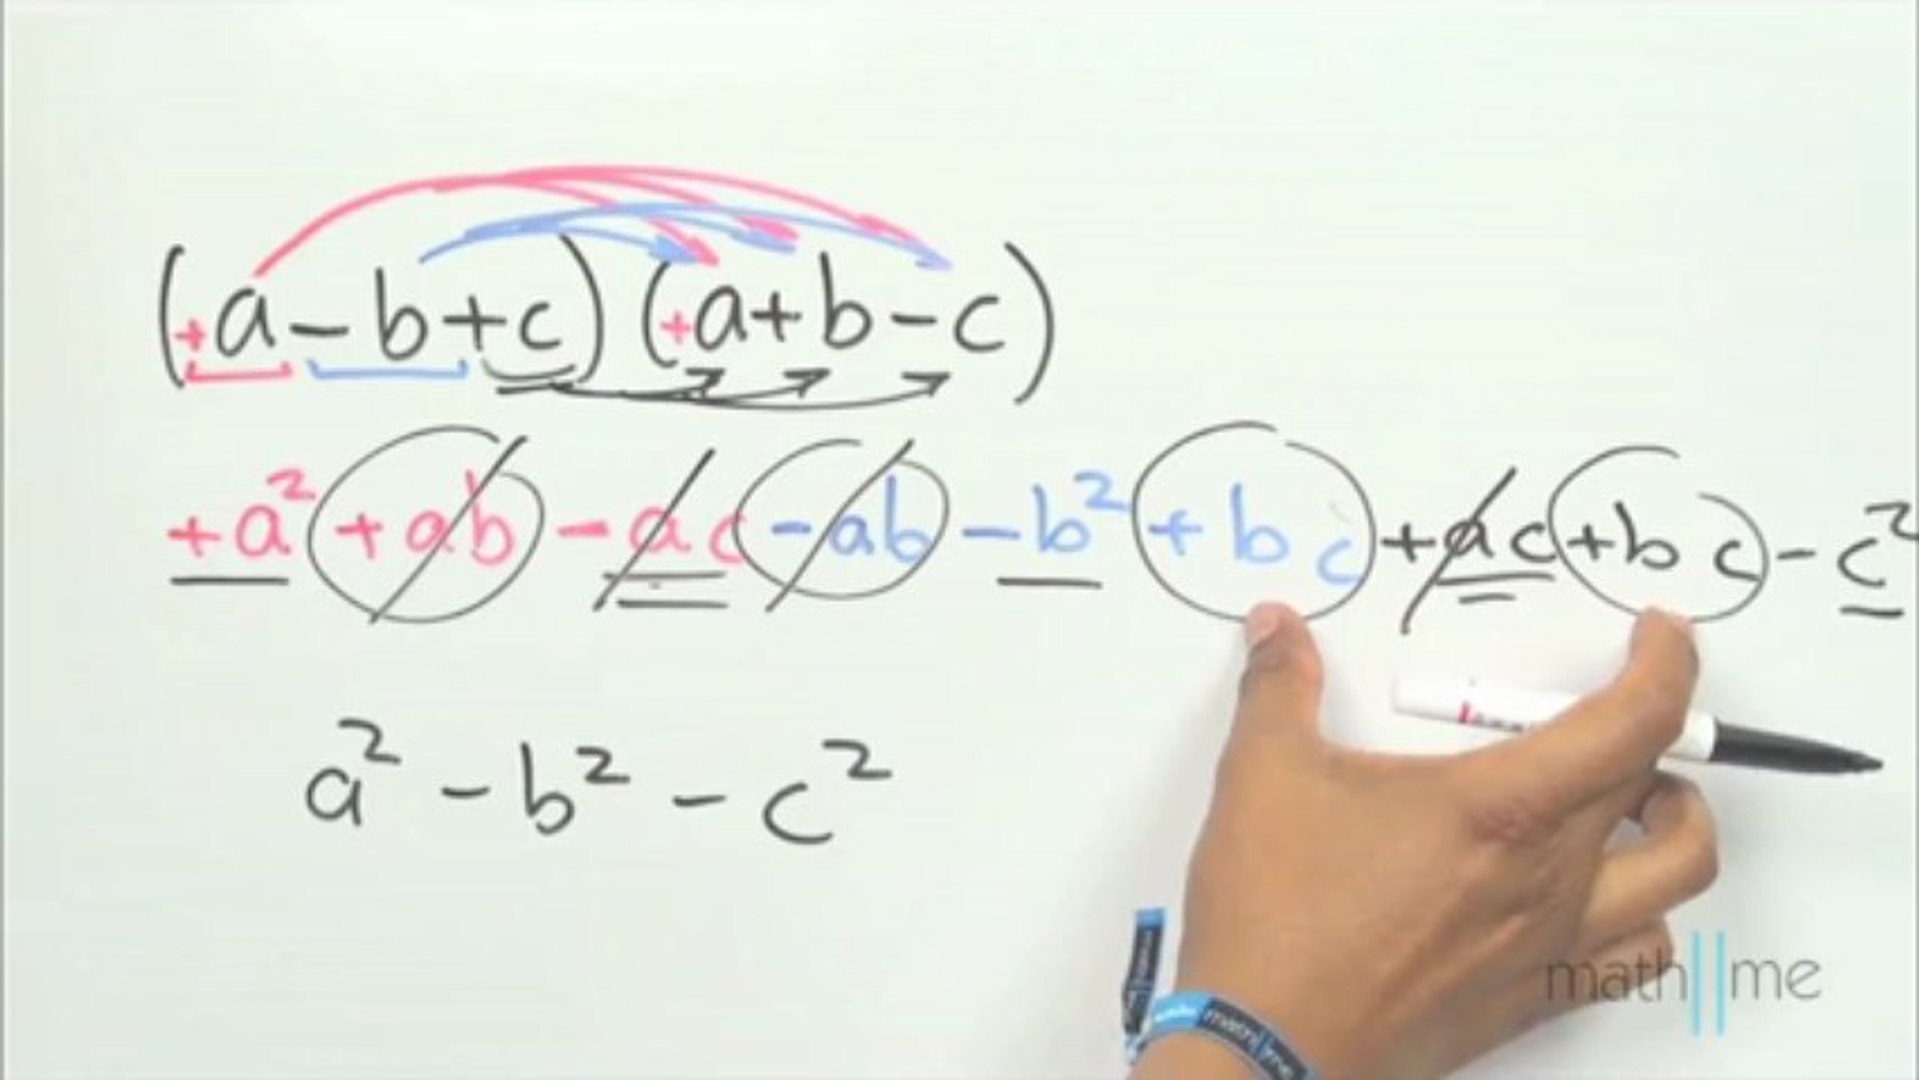 (+a-b+c)(+a+b-c)
+a²+ab-ac-ab-b²+bc+ac+bc-c²
a²-b²-c²
math||me